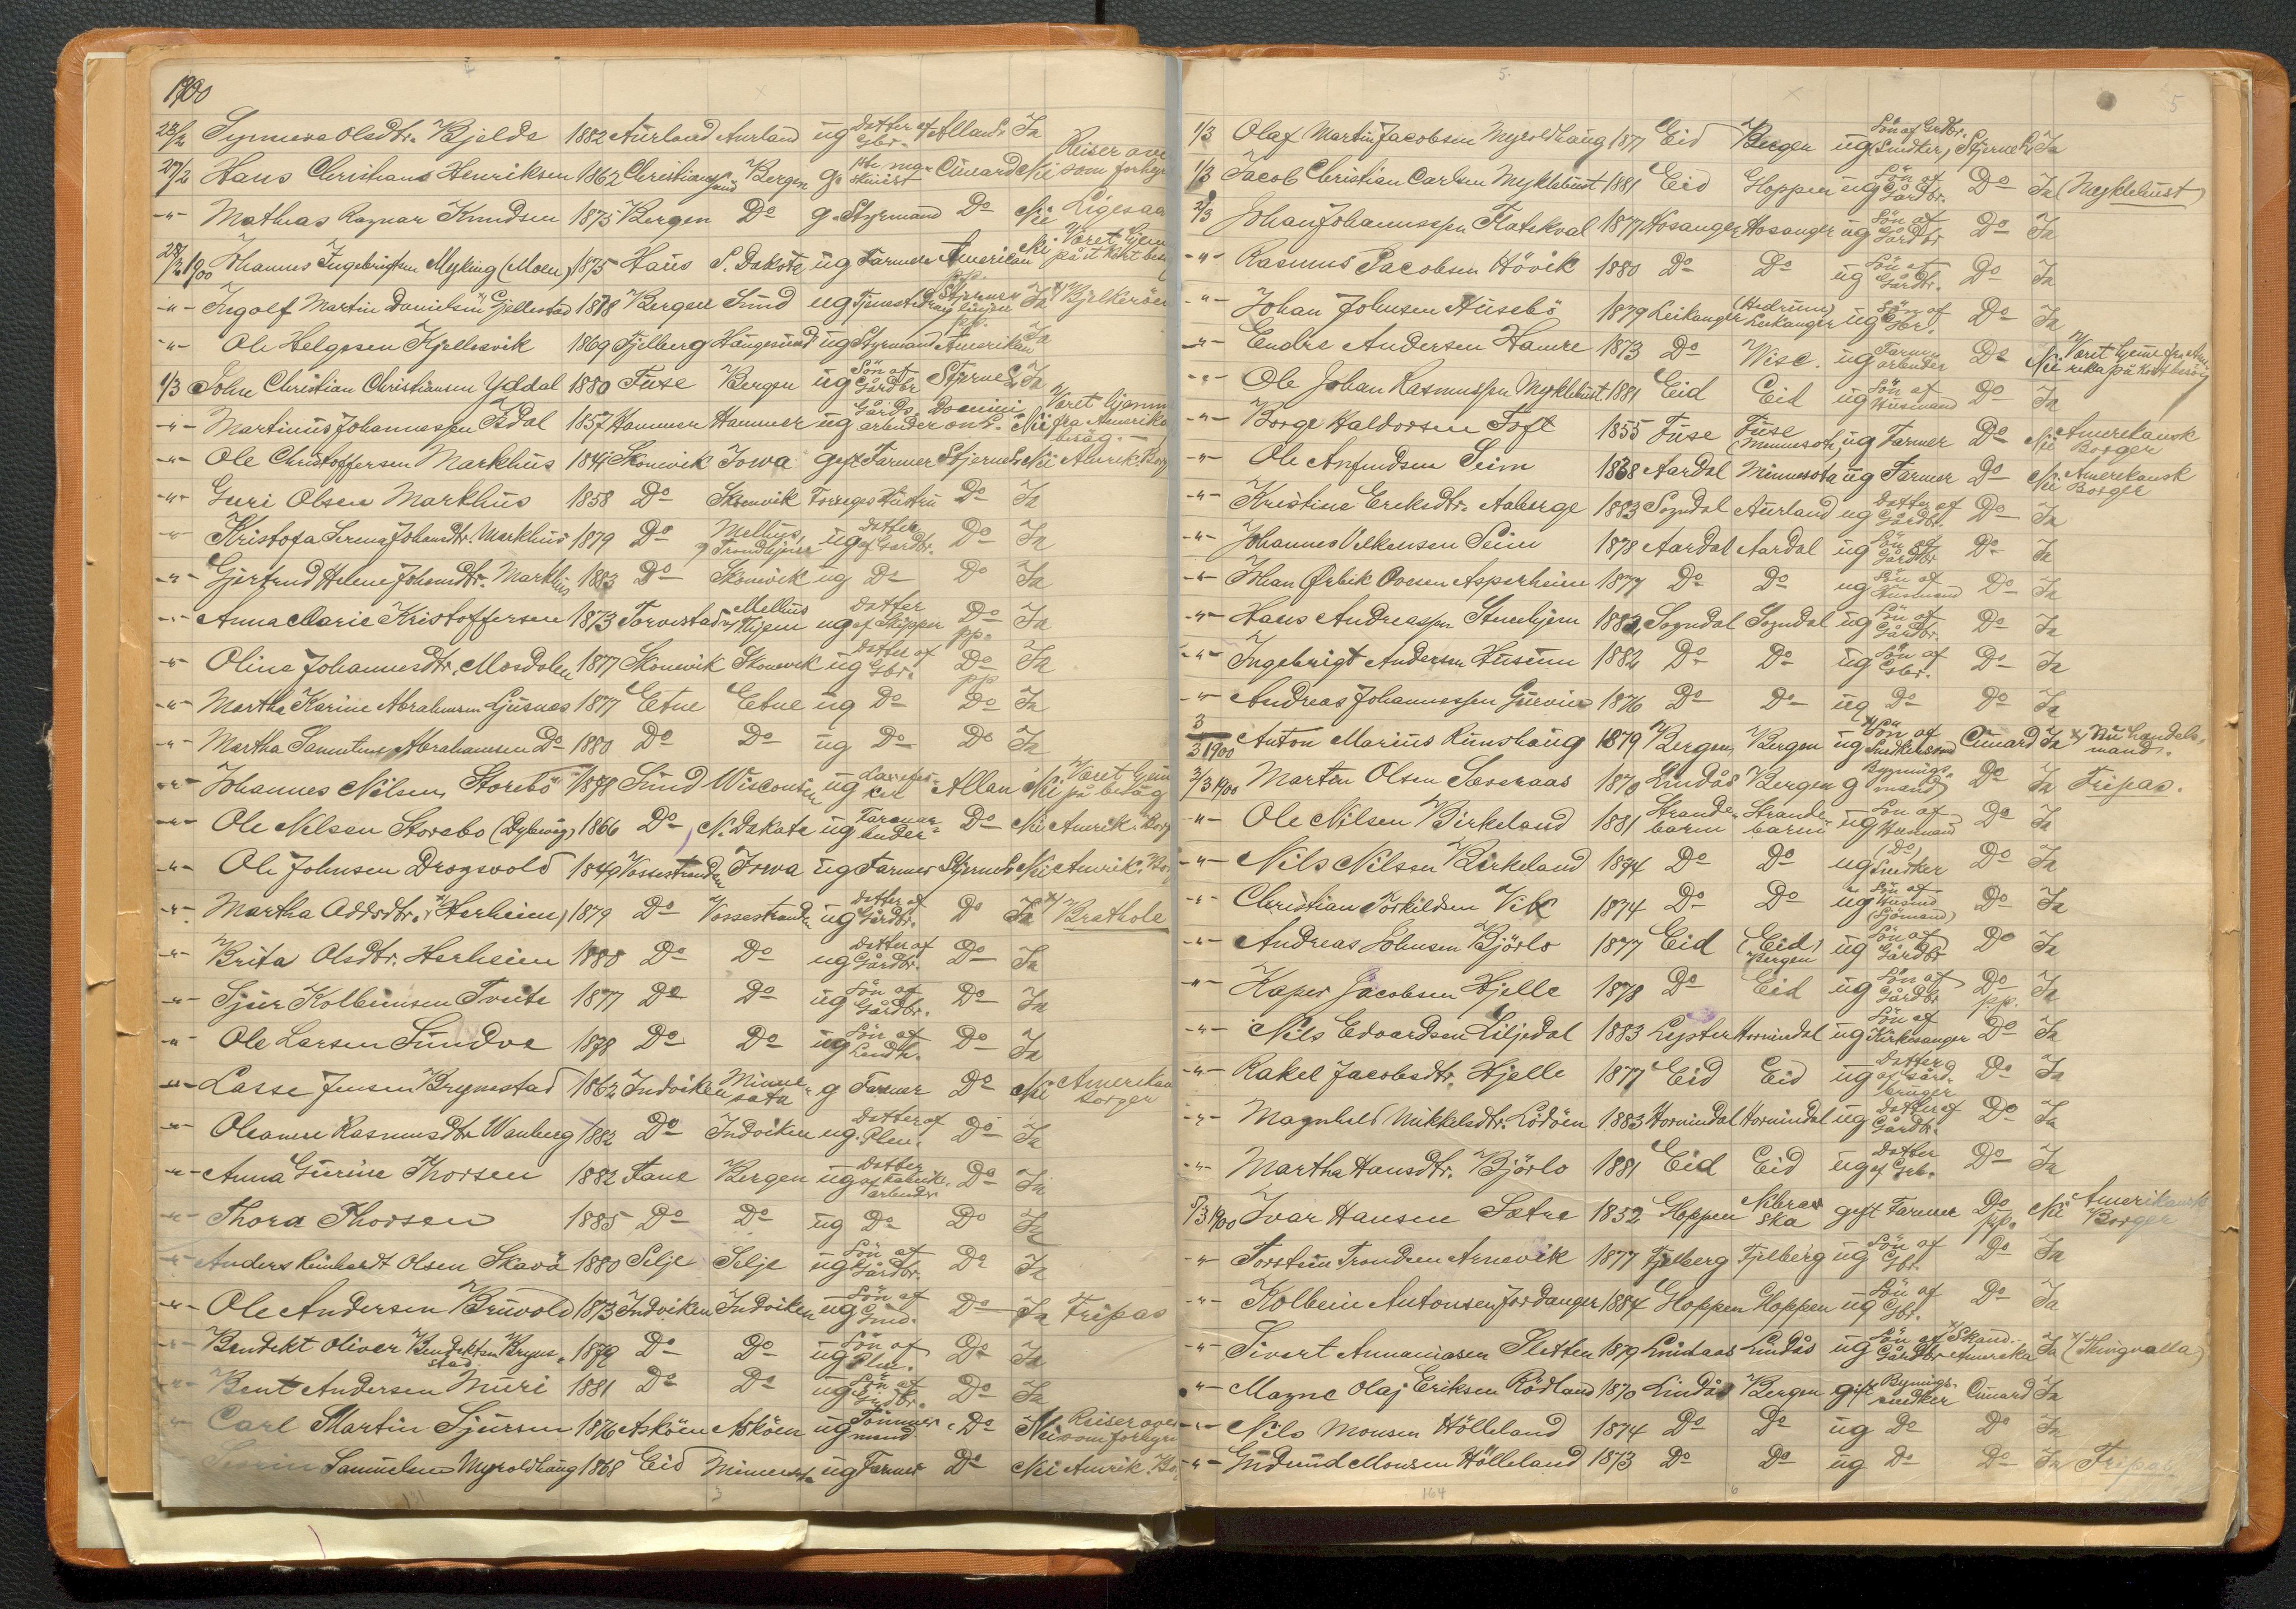 1900
23/2 Synneva Olsdtr. Kjelde 1882 Aurland Aurland ug Datter af Gbr. Allan L. Ja
27/2 Hans Christians Henriksen 1862 Christiansund Bergen g. Cunard Nei Reiser ove som forhyr
-"- Mathias Ragnar Knudsen 1875 Bergen Do g. Styrmand Do Nei Ligesaa
28/2 1900 Johannes Ingebrigtsen Myking (Moen) 1875 Haus S. Dakota ug Farmer Amerikan Nei Været hjem på et kort besø
-"- Ingolf Martin Danielsen Gjellestad 1878 Bergen Sund ug Tjenestedreng Stjernelinjen pp. Ja x) Bjelkerøen
-"- Ole Helgesen Kjellesvik 1869 Fjelberg Haugesund ug Styrmand Amerikan pp. Ja
1/3 John Christian Christiansen Yddal 1880 Fuse Bergen ug Søn af Gårdbr Stjerne L. Ja
-"- Martinus Johannessen Isdal 1857 Hammer Hammer ug Gårdsarbeider Dominion L. Nei Været hjemme fra Amerika besøg.
-"- Ole Christoffersen Markhus 1841 Skonevik Iowa gift Farmer Stjerne L. Nei Amerik. Borg
-"- Guri Olsen Markhus 1858 Do Skonevik Forriges Hustru Do Ja
-"- Kristofa Serena Johansdtr. Markhus 1879 Do Melhus, Trondhjem ug Datter af Gårdbr. Do Ja
-"- Gjertrud Helene Johansdtr. Markhus 1883 Do Skonevik ug Do Do Ja
-"- Anna Marie Kristoffersen 1873 Torvestad Melhus Thjem ug Datter af Skipper Do pp. Ja
-"- Oline Johannesdtr. Mosdalen 1877 Skonevik Skonevik ug Datter af Gbr. Do pp Ja
-"- Martha Karine Abrahamsen Gjusnæs 1877 Etne Etne ug Do Do Ja
-"- Martha Samuline Abrahamsen Do 1880 Do Do ug Do Do Ja
-"- Johannes Nilsen Storebø 1878 Sund Wisconsin ug Allan Nei Været hjem på besøg
-"- Ole Nilsen Storebo (Dyløvåg) 1866 Do N. Dakota ug Farmarbeider Do Nei Amerik. Borg
-"- Ole Johnsen Drogsvold 1849 Vossestranden Iowa ug Farmer Stjerne L. Nei Amerik. Bor
-"- Martha Oddsdtr. x) Herheim 1879 Do Vossestranden ug Datter af Gårdbr. Do Ja x) Brathole
-"- Brita Olsdtr. Herheim 1880 Do Do ug Datter af Gårdbr. Do Ja
-"- Sjur Kolbeinsen Tveite 1877 Do Do ug Søn af Gårdbr. Do Ja
-"- Ole Larsen Sundve 1878 Do Do ug Søn af Landh. Do Ja
-"- Lasse Jensen Brynestad 1862 Indviken Minnesota g Farmer Do Nei Amerikan Borger
-"- Oleanne Rasmusdtr Wanberg 1882 Do Indviken ug. Datter af Do Ja
-"- Anna Gurine Thorsen 1882 Fane Bergen ug Datter af Fabrikarbeider Do Ja
-"- Thora Thorsen 1885 Do Do ug Do Do Ja
-"- Anders Reinhardt Olsen Skavø 1880 Selje Selje ug Søn af Gårdbr. Do Ja
-"- Ole Andersen Bruvold 1873 Indviken Indviken ug Søn af Do Ja Fripas
-"- Bendikt Oliver Bendiktsen Brynestad 1879 Do Do ug Søn af Do Ja
-"- Bent Andersen Muri 1881 Do Do ug Søn af Do Ja
-"- Carl Martin Sjursen 1876 Askøen Askøen ug Tømmermand Do Nei Reiser over som forhyr
Samuelsen Myroldhaug 1868 Eid Minnesota ug Farmer Do Nei Amerik. Bo.
131
3
5.
5
1/3 Olaf Martin Jacobsen Myroldhaug 1877 Eid Bergen ug Søn af Grdbr. (Snedker) Stjerne L. Ja
1/3 Jacob Christian Carlsen Myklebust 1881 Eid Gloppen ug Søn af Gårdbr. Do Ja (Myklebust)
2/3 Johan Johannessen Flatekval 1877 Hosanger Hosanger ug Søn af Gårdbr Do Ja
-"- Rasmus Jacobsen Høvik 1880 Do Do ug Søn af Gårdbr. Do Ja
-"- Johan Johnsen Husebø 1879 Leikanger (Hedrum) Leikanger ug Søn af Gbr. Do Ja
-"- Endre Andersen Hamre 1873 Do Wisc. ug Farmarbeider Do Nei Været hjemme fra Amerika på kort besøg
-"- Ole Johan Rasmussen Myklebust 1881 Eid Eid ug Søn af Husmand Do Ja
-"- Borge Haldorsen Toft 1855 Fuse Fuse (Minnesota) ug Farmer Do Nei Amerikansk Borger
-"- Ole Anfindsen Seim 1868 Aardal Minnesota ug Farmer Do Nei Amerikansk Borger
-"- Kristine Eriksdtr. Aaberge 1883 Sogndal Aurland ug Datter af Gårdbr. Do Ja
-"- Johannes Velkensen Seim 1878 Aardal Aardal ug Søn af Gårdbr Do Ja
-"- Johan Ørbik Ovesen Asperheim 1877 Do Do ug Søn af Husmand Do Ja
-"- Hans Andreassen Stenhjem 1882 Sogndal Sogndal ug Søn af Gårdbr. Do Ja
-"- Ingebrigt Andersen Husum 1882 Do Do ug Søn af Gbr. Do Ja
-"- Andreas Johannessen Gurvin 1876 Do Do ug Do Do Ja
3/3 1900 Anton Marius Kunshaug 1879 Bergen Bergen ug x) Søn af Snedkersvend Cunard Ja x) Nu handelsmand.
3/3 1900 Martin Olsen Sævraas 1870 Lindås Bergen g Bygningsmand Do Ja Fripas.
-"- Ole Nilsen Birkeland 1881 Strandebarm Strandebarm ug Søn af Husmand Do Ja
-"- Nils Nilsen Birkeland 1874 Do Do ug (Do) Snedker Do Ja
-"- Christian Torkildsen Vik 1874 Do Do ug Søn af Husmd (Sjømand) Do Ja
-"- Andreas Johnsen Bjørlo 1877 Eid (Eid) Bergen ug Søn af Gårdbr Do Ja
-"- Kaper Jacobsen Hjelle 1878 Do Eid ug Søn af Gårdbr Do pp. Ja
-"- Nils Edvardsen Liljedal 1883 Lyster Hornindal ug Søn af Kirkesanger Do Ja
-"- Rakel Jacobsdtr. Hjelle 1877 Eid Eid ug Datter af Gårdbruger Do Ja
-"- Magnhild Mikkelsdtr. Lødøen 1883 Hornindal Hornindal ug Datter af Gårdbr. Do Ja
-"- Martha Hansdtr. Bjørlo 1881 Eid Eid ug Datter af Grb. Do Ja
5/3 1900 Ivar Hansen Sætre 1852 Gloppen Nebraska gift Farmer Do pp. Nei Amerikansk Borger
-"- Torstein Trondsen Arnevik 1877 Fjelberg Fjelberg ug Søn af Gbr. Do Ja
-"- Kolbein Antonsen Jordanger 1884 Gloppen Gloppen ug Søn af Gbr. Do Ja
-"- Sivert Annaniasen Sletten 1879 Lindaas Lindås ug Søn af Gårdbr x) Skand. Amerika Ja x) (Thingvalla)
-"- Magne Olaj Eriksen Rødland 1870 Lindås Bergen gift Bygningssnedker Cunard Ja
-"- Nils Monsen Hølleland 1874 Do Do ug Do Do Ja
-"- Gudmund Monsen Hølleland 1873 Do Do ug Do Do Ja Fripas
164
6